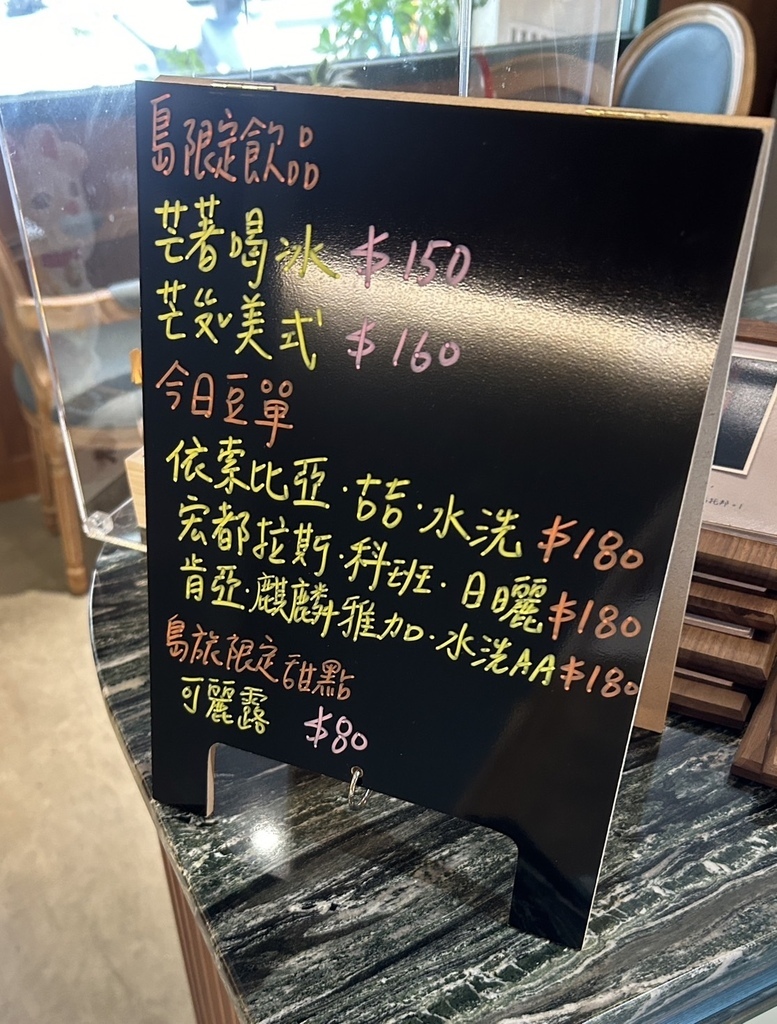 島限定飲品
芒著喝冰 $150
芒如美式 $160
今日豆單
依索比亞·喆·水洗 $180
宏都拉斯·科班·日曬 $180
肯亞·麒麟雅加·水洗AA $180
島旅限定甜點
可麗露 $80